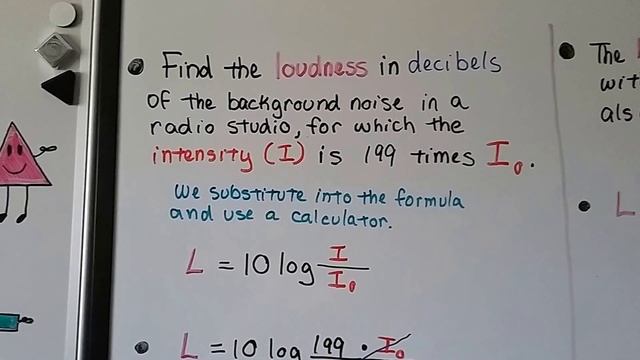 • Find the loudness in decibels
of the background noise in a
radio studio, for which the
intensity (I) is 199 times I₀.
We substitute into the formula
and use a calculator.
L = 10 log I/I₀
• L = 10 log 199 · I₀
• The
wit
als
• L